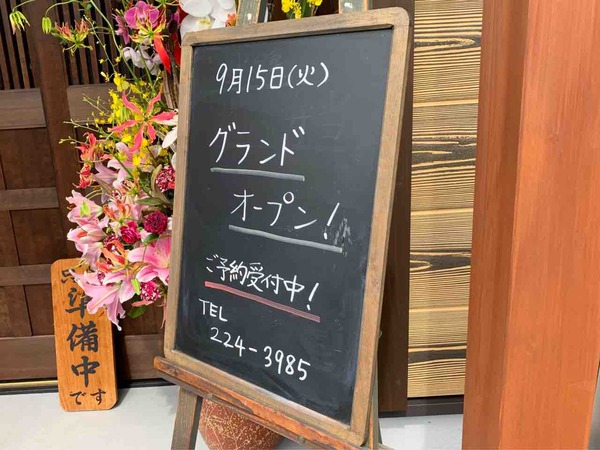 9月15日(火)
グランド
オープン!
ご予約受付中!
TEL
224-3985
準備中
です